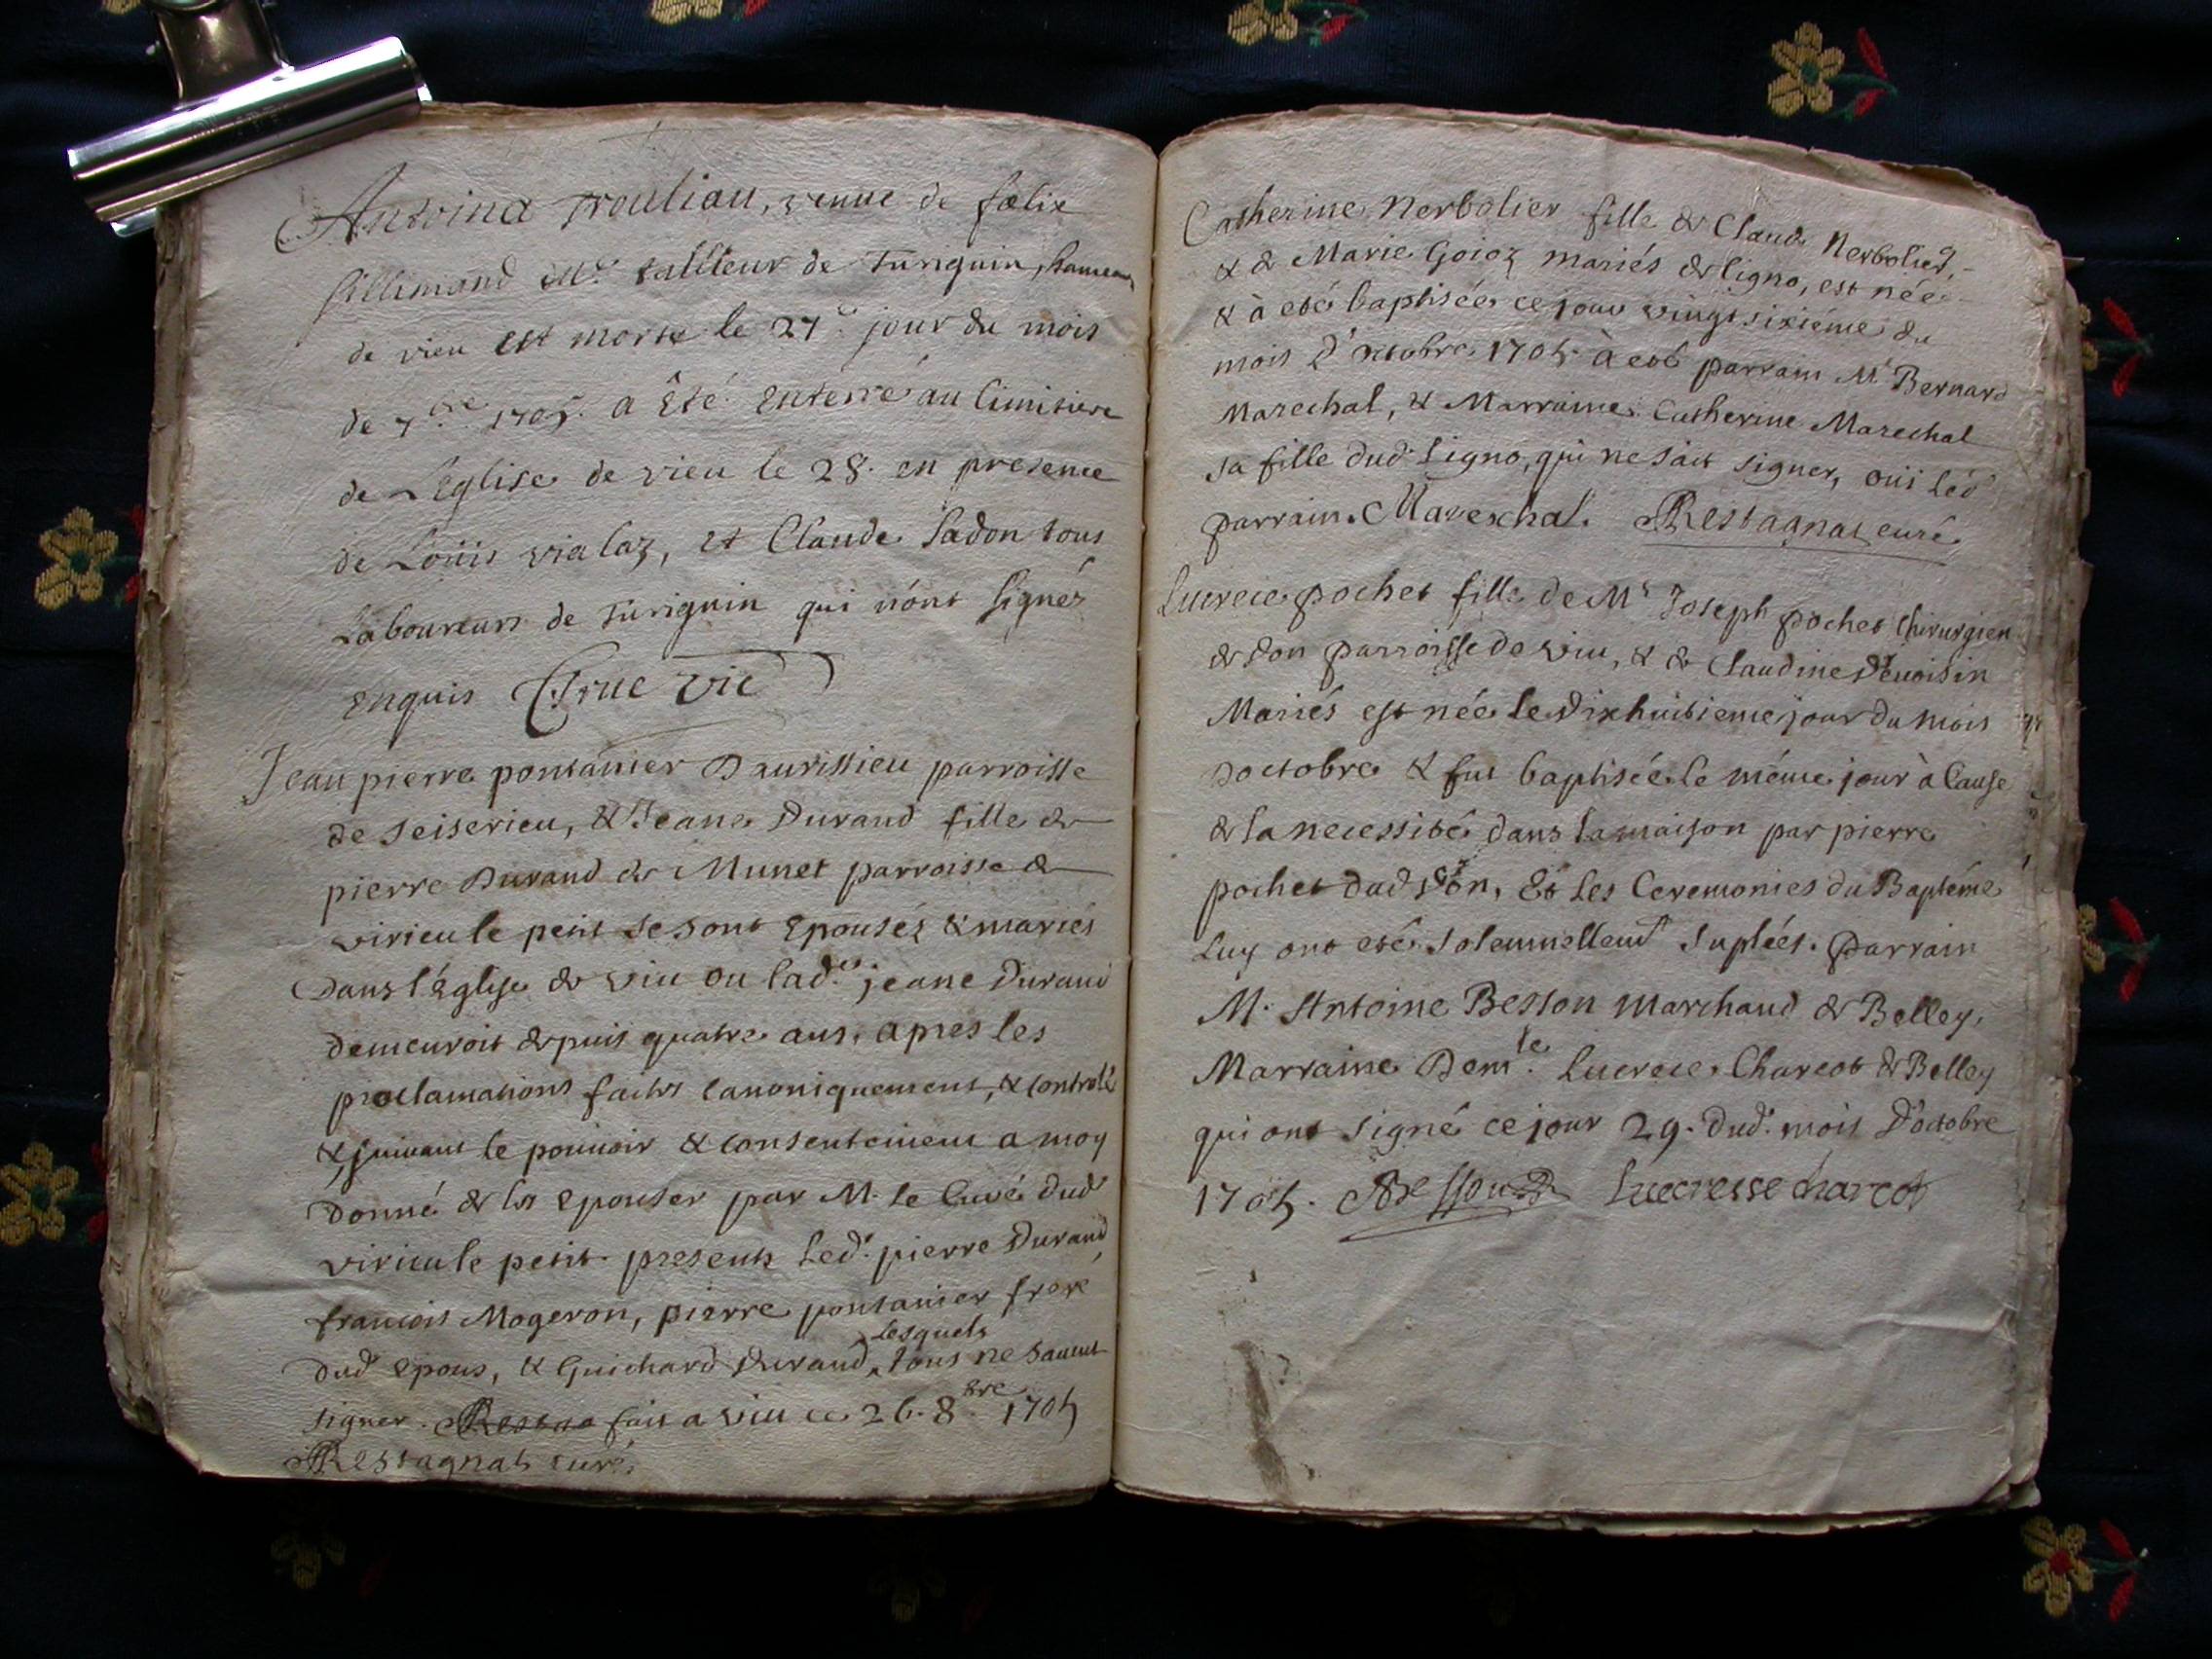 Antoina trouliau, venue de fœlix
fillimand Mr tallieur de Turignin, hameau
de vieu est morte le 27e jour du mois
de 7bre 1705. a êté Enterré au Cimitiere
de L'Eglise de vieu le 28. en presence
de Loüis vialaz, et Claude Sadon tous
Laboureurs de Turignin qui n'ont signés
Enquis vic
Jean pierre pontanier D'aurissieu parroisse
de seiserieu, & Jeane Durand fille de
pierre Durand de Munet parroisse de
virieu le petit se sont Epousés & mariés
Dans l'Eglise de viu ou lad.e jeane Durand
demeuroit depuis quatre ans, apres les
proclamations faites canoniquement, & controlé
& suivant le pouuoir & consentement a moy
Donné de les epouser par M. le Curé dud
virieu le petit. presents Led. pierre Durand,
francois Mogeron, pierre pontanier frere
dud epous, & Guichard Durand, lesquels tous ne sauent
signer. Restag fait a viu ce 26. 8bre 1705
Restagnat curé.
Catherine Nerbolier fille de Claude Nerbolier,
& de Marie Goioz mariés de ligno, est née
& à eté baptisée ce jour vingt sixiéme du
mois D'octobre 1705. à eté parrain Mr Bernard
Marechal, & Marraine Catherine Marechal
sa fille dud. Ligno, qui ne sait signer, oüi led
parrain. Mareschal. Restagnat curé.
Lucrece pochet fille de Mr Joseph pochet Chirurgien
de don parroisse de viu, & de Claudine Deuoisin
Mariés est née le dixhuitieme jour du mois
D'octobre & fut baptisée le même jour à Cause
de la necessité dans la maison par pierre
pochet dud Don, Et les Ceremonies du Baptéme
Luy ont eté solemnellemt suplées. parrain
M. Antoine Besson Marchand de Belley,
Marraine Demle. Lucrece Charcot de Belley
qui ont signé ce jour 29. dud. mois D'octobre
1705. Besson Lucresse charcot